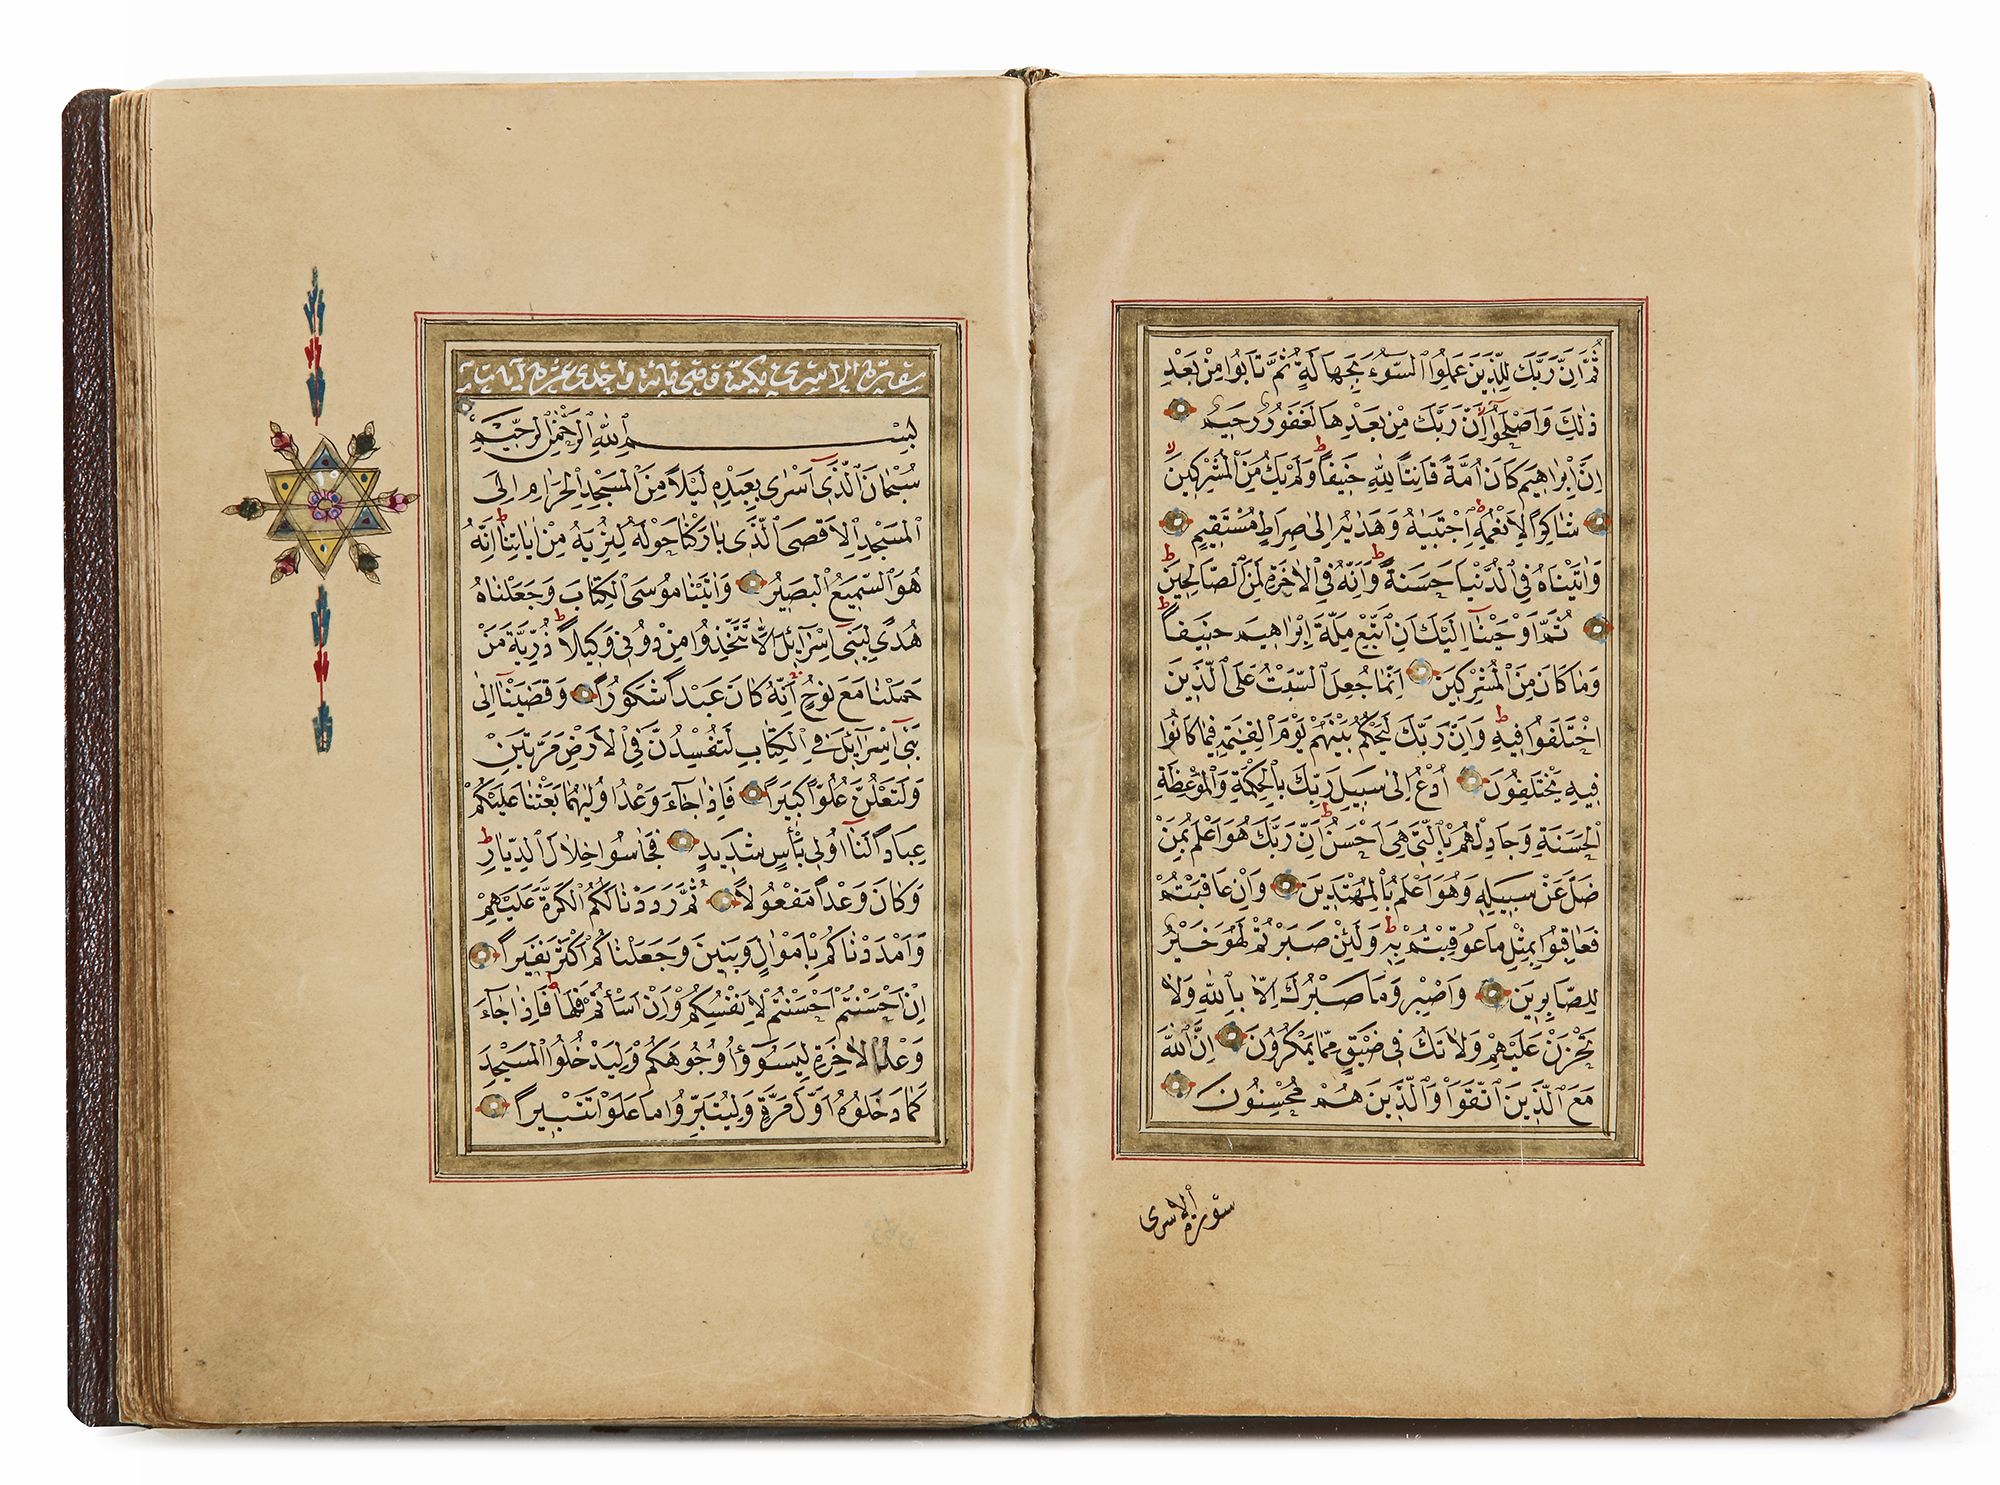 ثُمَّ اِنَّ رَبَّكَ لِلَّذِينَ عَمِلُوا السُّوءَ بِجَهَالَةٍ ثُمَّ تَابُوا مِنْ بَعْدِ
ذٰلِكَ وَاَصْلَحُوا اِنَّ رَبَّكَ مِنْ بَعْدِهَا لَغَفُورٌ رَحِيمٌ
اِنَّ اِبْرٰاهِيمَ كَانَ اُمَّةً قَانِتًا لِلّٰهِ حَنِيفًا ط وَلَمْ يَكُ مِنَ الْمُشْرِكِينَ لا
شَاكِرًا لِاَنْعُمِهِ ط اِجْتَبٰيهُ وَهَدٰيهُ اِلٰى صِرَاطٍ مُسْتَقِيمٍ
وَاٰتَيْنَاهُ فِي الدُّنْيَا حَسَنَةً ط وَاِنَّهُ فِي الْاٰخِرَةِ لَمِنَ الصَّالِحِينَ ط
ثُمَّ اَوْحَيْنَا اِلَيْكَ اَنِ اتَّبِعْ مِلَّةَ اِبْرٰاهِيمَ حَنِيفًا ط
وَمَا كَانَ مِنَ الْمُشْرِكِينَ اِنَّمَا جُعِلَ السَّبْتُ عَلَى الَّذِينَ
اخْتَلَفُوا فِيهِ ط وَاِنَّ رَبَّكَ لَيَحْكُمُ بَيْنَهُمْ يَوْمَ الْقِيٰمَةِ فِيمَا كَانُوا
فِيهِ يَخْتَلِفُونَ اُدْعُ اِلٰى سَبِيلِ رَبِّكَ بِالْحِكْمَةِ وَالْمَوْعِظَةِ
الْحَسَنَةِ وَجَادِلْهُمْ بِالَّتِي هِيَ اَحْسَنُ ط اِنَّ رَبَّكَ هُوَ اَعْلَمُ بِمَنْ
ضَلَّ عَنْ سَبِيلِهِ وَهُوَ اَعْلَمُ بِالْمُهْتَدِينَ وَاِنْ عَاقَبْتُمْ
فَعَاقِبُوا بِمِثْلِ مَا عُوقِبْتُمْ بِهِ ط وَلَئِنْ صَبَرْتُمْ لَهُوَ خَيْرٌ
لِلصَّابِرِينَ وَاصْبِرْ وَمَا صَبْرُكَ اِلَّا بِاللّٰهِ وَلَا
تَحْزَنْ عَلَيْهِمْ وَلَا تَكُ فِي ضَيْقٍ مِمَّا يَمْكُرُونَ اِنَّ اللّٰهَ
مَعَ الَّذِينَ اتَّقَوْا وَالَّذِينَ هُمْ مُحْسِنُونَ
سورة الاسرى
سورة الاسرى مكية وهي مائة واحدى عشرة آيات
بِسْمِ اللّٰهِ الرَّحْمٰنِ الرَّحِيمِ
سُبْحَانَ الَّذِي اَسْرٰى بِعَبْدِهِ لَيْلًا مِنَ الْمَسْجِدِ الْحَرَامِ اِلَى
الْمَسْجِدِ الْاَقْصَى الَّذِي بَارَكْنَا حَوْلَهُ لِنُرِيَهُ مِنْ اٰيَاتِنَا ط اِنَّهُ
هُوَ السَّمِيعُ الْبَصِيرُ وَاٰتَيْنَا مُوسَى الْكِتَابَ وَجَعَلْنَاهُ
هُدًى لِبَنِي اِسْرَائِيلَ اَلَّا تَتَّخِذُوا مِنْ دُونِي وَكِيلًا ط ذُرِّيَّةَ مَنْ
حَمَلْنَا مَعَ نُوحٍ اِنَّهُ كَانَ عَبْدًا شَكُورًا وَقَضَيْنَا اِلٰى
بَنِي اِسْرَائِيلَ فِي الْكِتَابِ لَتُفْسِدُنَّ فِي الْاَرْضِ مَرَّتَيْنِ
وَلَتَعْلُنَّ عُلُوًّا كَبِيرًا فَاِذَا جَاءَ وَعْدُ اُولٰيهُمَا بَعَثْنَا عَلَيْكُمْ
عِبَادًا لَنَا اُولِي بَأْسٍ شَدِيدٍ فَجَاسُوا خِلَالَ الدِّيَارِ ط
وَكَانَ وَعْدًا مَفْعُولًا ثُمَّ رَدَدْنَا لَكُمُ الْكَرَّةَ عَلَيْهِمْ
وَاَمْدَدْنَاكُمْ بِاَمْوَالٍ وَبَنِينَ وَجَعَلْنَاكُمْ اَكْثَرَ نَفِيرًا
اِنْ اَحْسَنْتُمْ اَحْسَنْتُمْ لِاَنْفُسِكُمْ وَاِنْ اَسَأْتُمْ فَلَهَا ط فَاِذَا جَاءَ
وَعْدُ الْاٰخِرَةِ لِيَسُوؤُا وُجُوهَكُمْ وَلِيَدْخُلُوا الْمَسْجِدَ
كَمَا دَخَلُوهُ اَوَّلَ مَرَّةٍ وَلِيُتَبِّرُوا مَا عَلَوْا تَتْبِيرًا